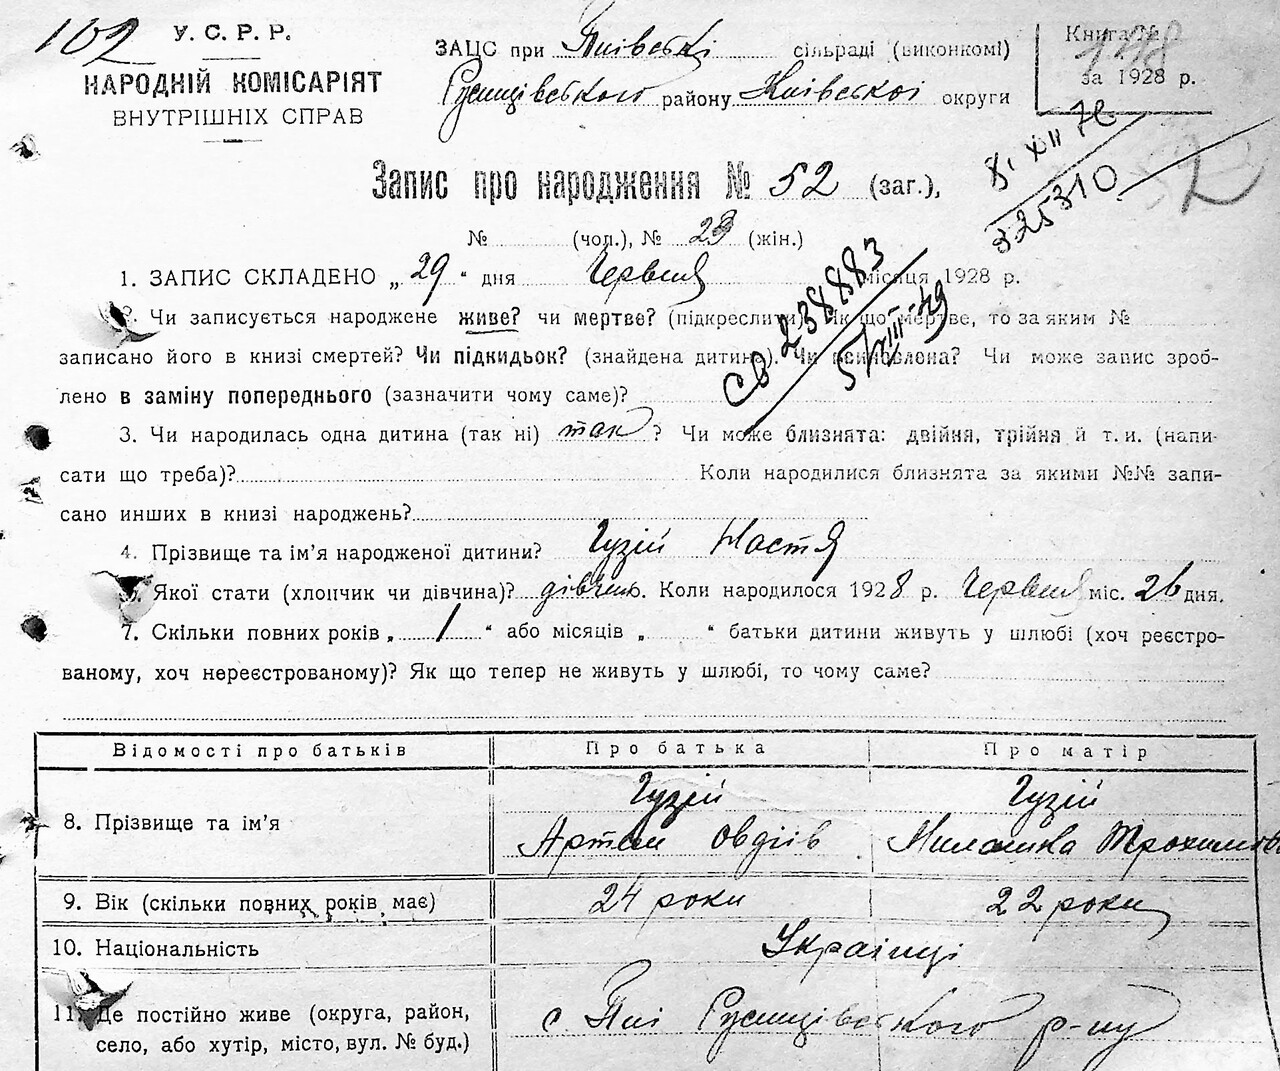 102
У. С. Р. Р.
НАРОДНІЙ КОМІСАРІЯТ
ВНУТРІШНІХ СПРАВ
ЗАЦС при Пиівські сільраді (виконкомі)
району Київської округи
Книга №
за 1928 р.
Запис про народження № 52 (заг.),
№ (чол.), № 23 (жін.)
8. XII 72
325310
СВ 238883
5/VIII-49
1. ЗАПИС СКЛАДЕНО „29" дня Червня місяця 1928 р.
2. Чи записується народжене живе? чи мертве? (підкреслити) Як що мертве, то за яким №
записано його в книзі смертей? Чи підкидьок? (знайдена дитина). Чи всиновлена? Чи може запис зроб-
лено в заміну попереднього (зазначити чому саме)?
3. Чи народилась одна дитина (так ні) так? Чи може близнята: двійня, трійня й т. и. (напи-
сати що треба)? Коли народилися близнята за якими №№ запи-
сано инших в книзі народжень?
4. Прізвище та ім'я народженої дитини? Гузій Настя
Якої стати (хлопчик чи дівчина)? дівчин. Коли народилося 1928 р. Червня міс. 26 дня.
7. Скільки повних років „1" або місяців „ " батьки дитини живуть у шлюбі (хоч реєстро-
ваному, хоч нереєстрованому)? Як що тепер не живуть у шлюбі, то чому саме?
Відомості про батьків Про батька Про матір
8. Прізвище та ім'я Гузій Гузій
Артем Овдіїв Миланка
9. Вік (скільки повних років має) 24 роки 22 роки
10. Національність Українці
11. Де постійно живе (округа, район, с. Пиї р-ну
село, або хутір, місто, вул. № буд.)